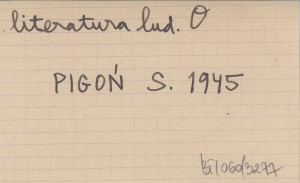 literatura lud. O
PIGOŃ S. 1945